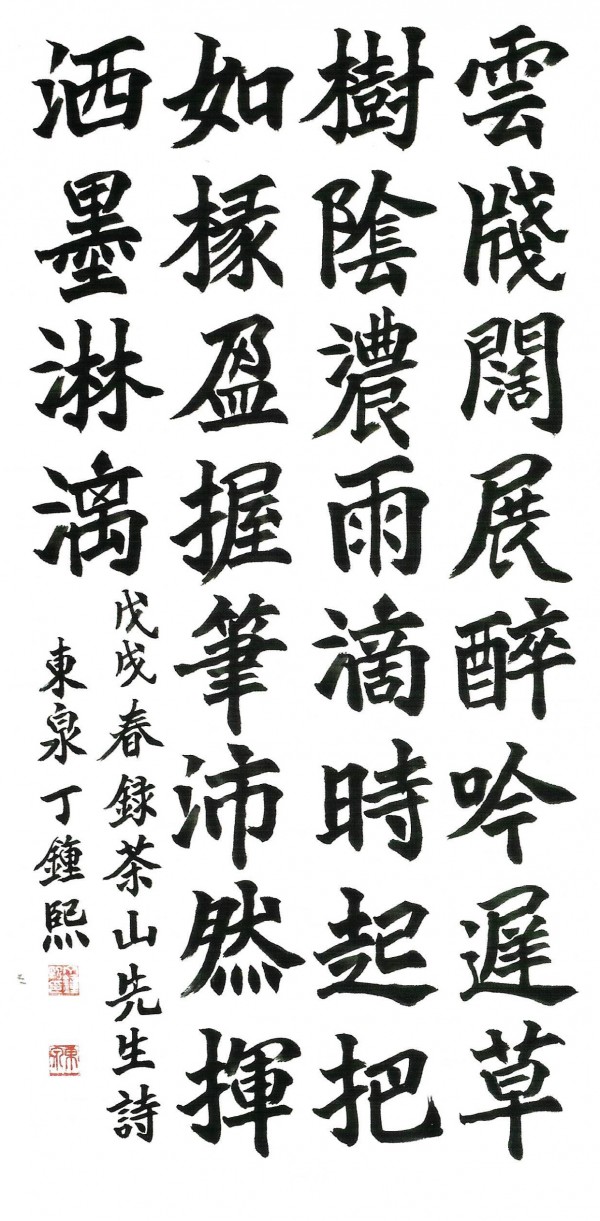 雲牋闊展醉吟遲草
樹陰濃雨滴時起把
如椽盈握筆沛然揮
洒墨淋漓
戊戌春録茶山先生詩
東泉丁鍾熙